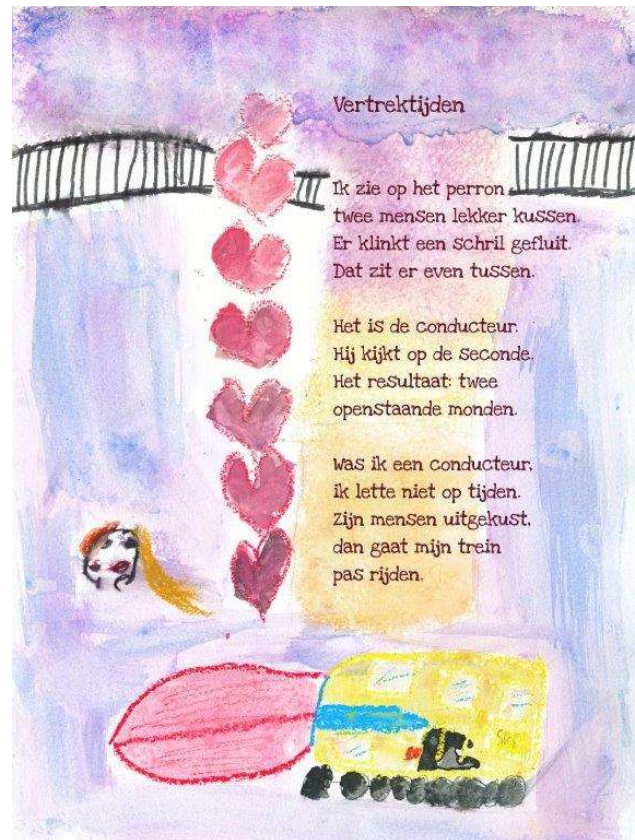 Vertrektijden
Ik zie op het perron
twee mensen lekker kussen.
Er klinkt een schril gefluit.
Dat zit er even tussen.
Het is de conducteur.
Hij kijkt op de seconde.
Het resultaat: twee
openstaande monden.
Was ik een conducteur,
ik lette niet op tijden.
Zijn mensen uitgekust,
dan gaat mijn trein
pas rijden.